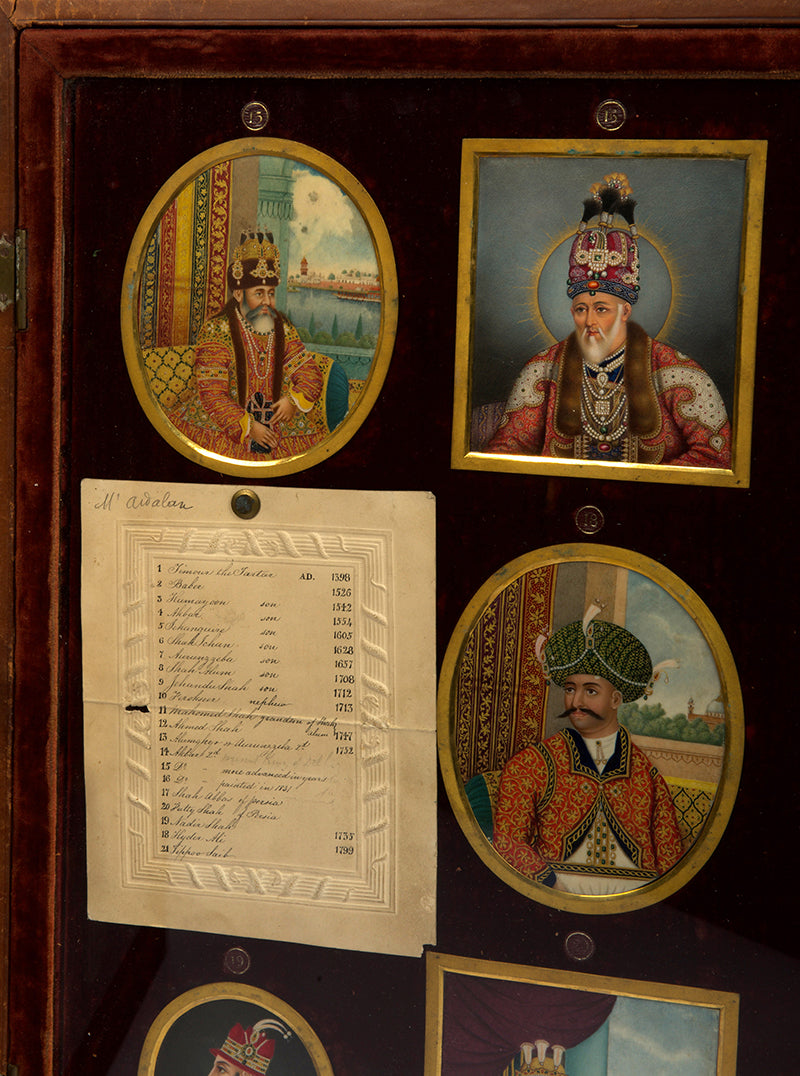 15
15
Mr Ardalan
1 Timour the Tartar AD. 1398
2 Baber 1526
3 Humayoon son 1542
4 Akbar son 1554
5 Jehanguire son 1605
6 Shah Jehan son 1628
7 Aurungzeba son 1657
8 Shah Alum son 1708
9 Jehandu Shah son 1712
10 Ferokseer nephew 1713
11 Mahomed Shah grandson of Shah
alum 1747
12 Ahmed Shah
13 Alumgheer or Aurungzeba 2d 1752
14 Akbar 2d
15 Do more advanced in years
16 Do painted in 1821
17 Shah Abbas of persia
20 Futty Shah of Persia
19 Nadir Shah
18 Hyder Ali 1755
21 Tippoo Saib 1799
18
19